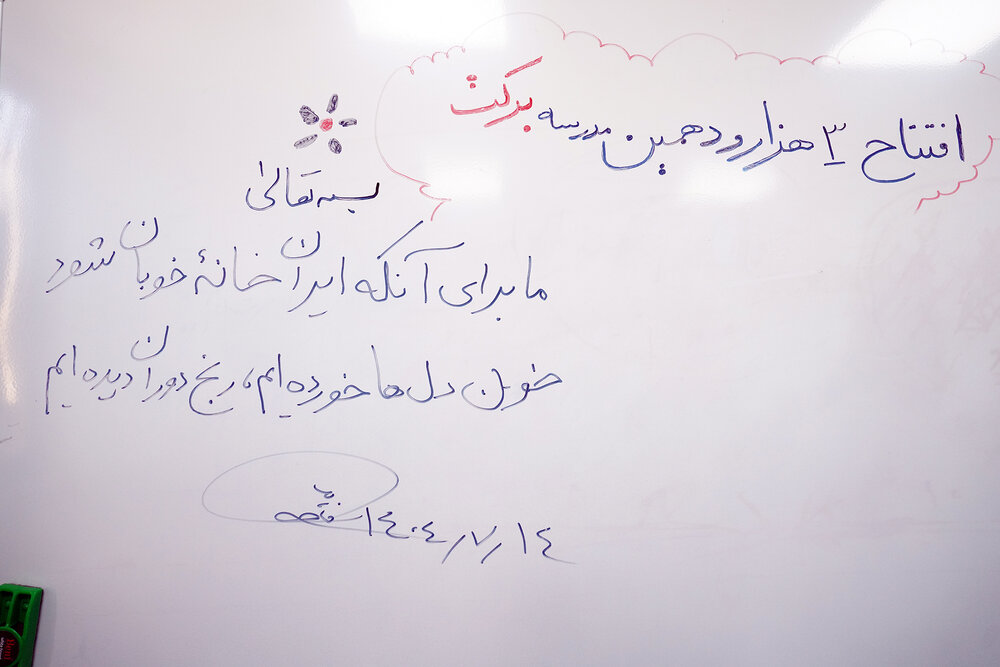 افتتاح ۳ هزار و دهمین مدرسه برکت
بسمه تعالی
ما برای آنکه ایران خانهٔ خوبان شود
خون دل ها خورده ایم، رنج دوران دیده ایم
۱۴۰۴٫۷٫۱۴